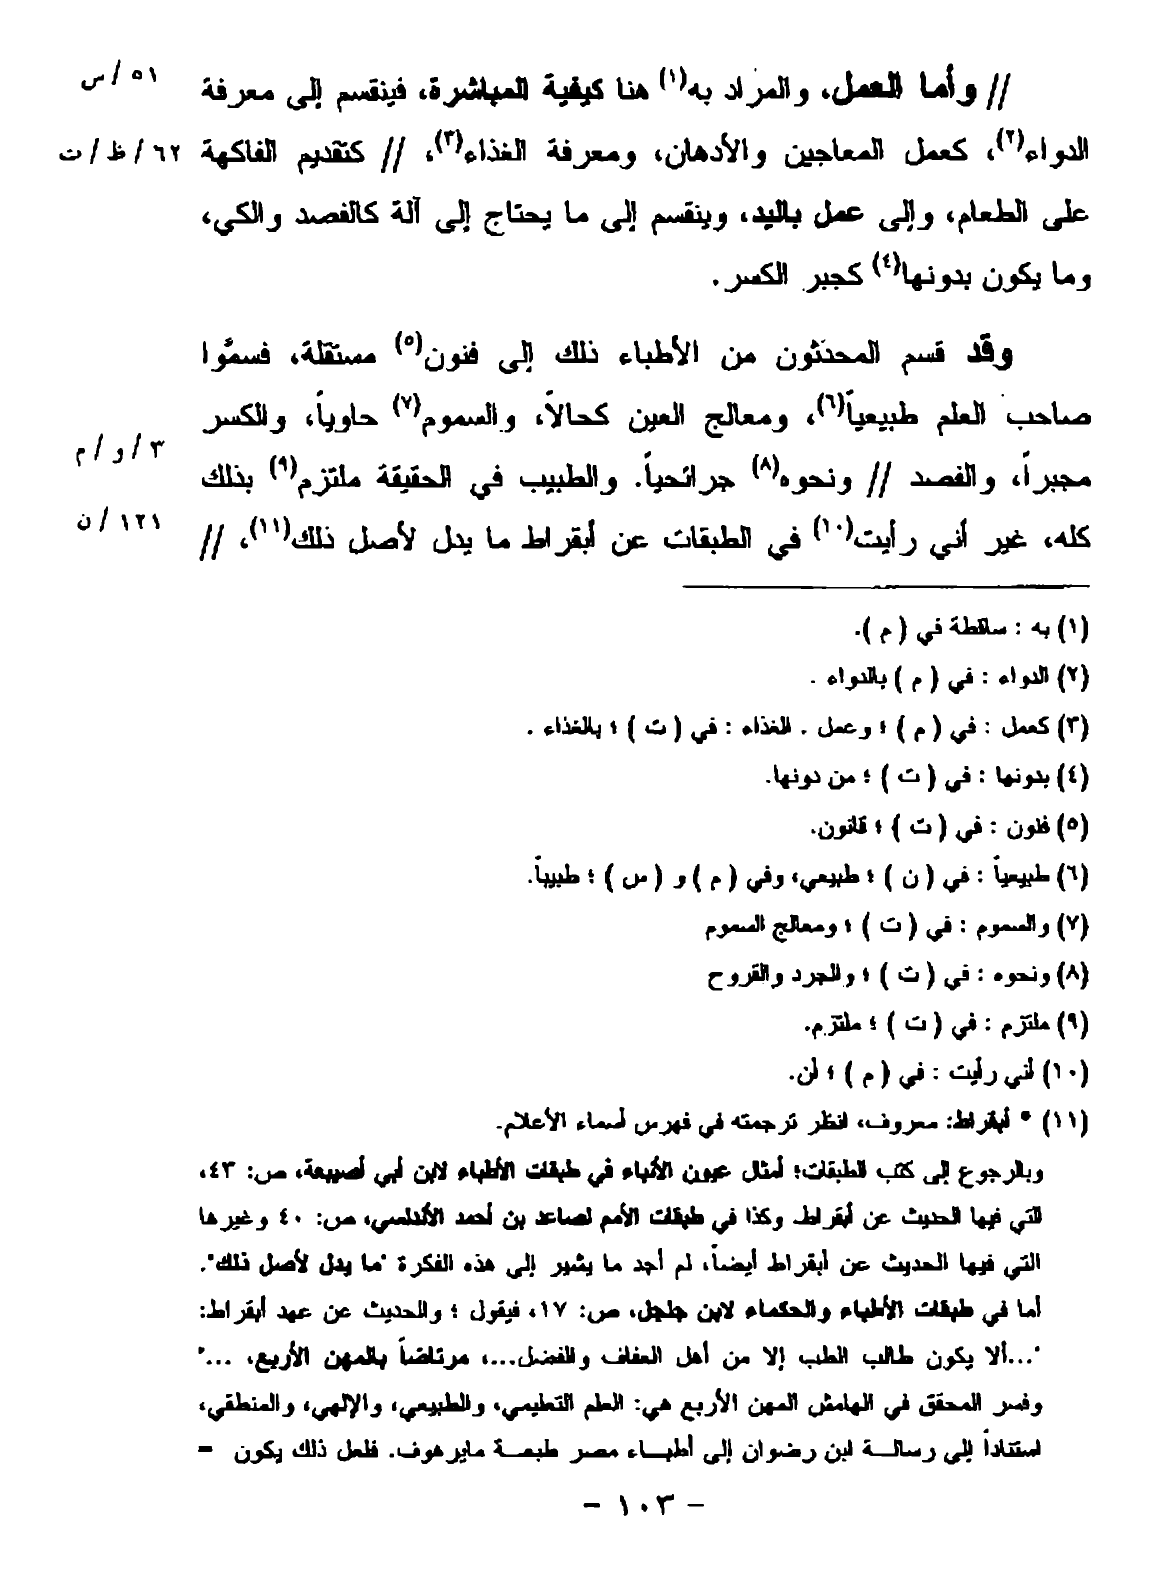 // وأما العمل، والمراد به(١) هنا كيفية المباشرة، فينقسم إلى معرفة
٥١ /س
الدواء(٢)، كعمل المعاجين والأدهان، ومعرفة الغذاء(٣)، // كتقديم الفاكهة
٦٢ /ظ /ت
على الطعام، وإلى عمل باليد، وينقسم إلى ما يحتاج إلى آلة كالفصد والكي،
وما يكون بدونها(٤) كجبر الكسر.
وقد قسم المحدثون من الأطباء ذلك إلى فنون(٥) مستقلة، فسمَّوا
صاحب العلم طبيعياً(٦)، ومعالج العين كحالاً، والسموم(٧) حاوياً، والكسر
٣ /و /م
مجبراً، والفصد // ونحوه(٨) جرائحياً. والطبيب في الحقيقة ملتزم(٩) بذلك
١٢١ /ن
كله، غير أني رأيت(١٠) في الطبقات عن أبقراط ما يدل لأصل ذلك(١١)، //
(١) به : ساقطة في ( م ).
(٢) الدواء : في ( م ) بالدواء .
(٣) كعمل : في ( م ) ؛ وعمل . الغذاء : في ( ت ) ؛ بالغذاء .
(٤) بدونها : في ( ت ) ؛ من دونها.
(٥) فنون : في ( ت ) ؛ قانون.
(٦) طبيعياً : في ( ن ) ؛ طبيعي، وفي ( م ) و ( س ) ؛ طبيباً.
(٧) والسموم : في ( ت ) ؛ ومعالج السموم
(٨) ونحوه : في ( ت ) ؛ والجرد والقروح
(٩) ملتزم : في ( ت ) ؛ ملتزم.
(١٠) أني رأيت : في ( م ) ؛ أن.
(١١) * أبقراط: معروف، انظر ترجمته في فهرس أسماء الأعلام.
وبالرجوع إلى كتب الطبقات؛ أمثال عيون الأنباء في طبقات الأطباء لابن أبي أصيبعة، ص: ٤٣،
التي فيها الحديث عن أبقراط. وكذا في طبقات الأمم لصاعد بن أحمد الأندلسي، ص: ٤٠ وغيرها
التي فيها الحديث عن أبقراط أيضاً، لم أجد ما يشير إلى هذه الفكرة "ما يدل لأصل ذلك".
أما في طبقات الأطباء والحكماء لابن جلجل، ص: ١٧، فيقول ؛ والحديث عن عهد أبقراط:
"...ألا يكون طالب الطب إلا من أهل العفاف والفضل...، مرتاضاً بالمهن الأربع، ..."
وفسر المحقق في الهامش المهن الأربع هي: العلم التعليمي، والطبيعي، والإلهي، والمنطقي،
استناداً إلى رسالة ابن رضوان إلى أطباء مصر طبعة مايرهوف. فلعل ذلك يكون =
- ١٠٣ -